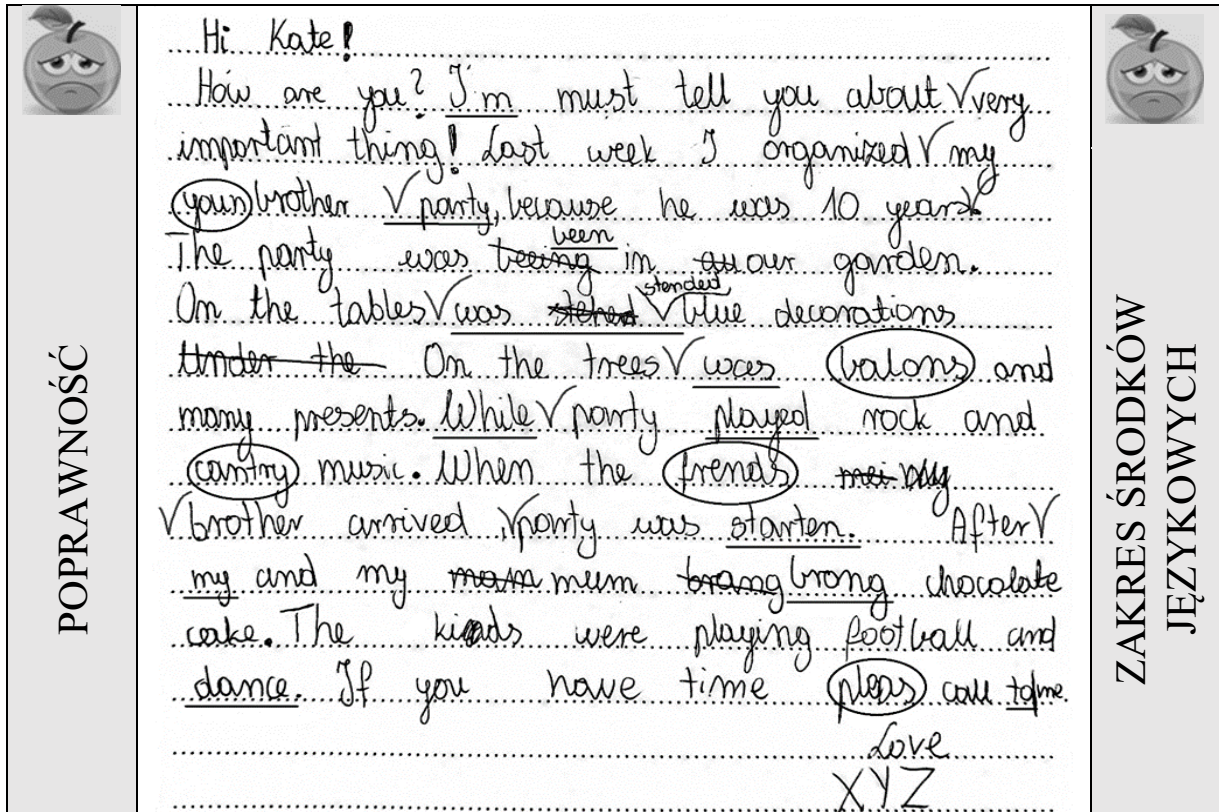 POPRAWNOŚĆ
Hi Kate!
How are you? I'm must tell you about V very
important thing! Last week I organized V my
youn brother V party, because he was 10 years V
been
The party was beeing in our garden.
stended
On the tables V was V blue decorations
Under the On the trees V was balons and
many presents. While V party played rock and
cantry music. When the frends my
V brother arrived, V party was starten. After V
my and my mam mum brang brong chocolate
cake. The kids were playing football and
dance. If you have time pleas call to me.
Love
XYZ
ZAKRES ŚRODKÓW
JĘZYKOWYCH